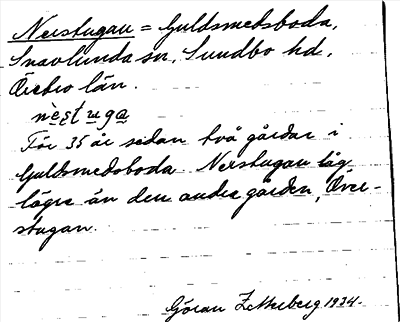 Nerstugan = Guldsmedsboda,
Snavlunda sn, Sundbo hd,
Örebro län.
nèstuga
För 35 år sedan två gårdar i
Guldsmedsboda Nerstugan låg
lägre än den andra gården, Över-
stugan.
Göran Zetterberg 1934.